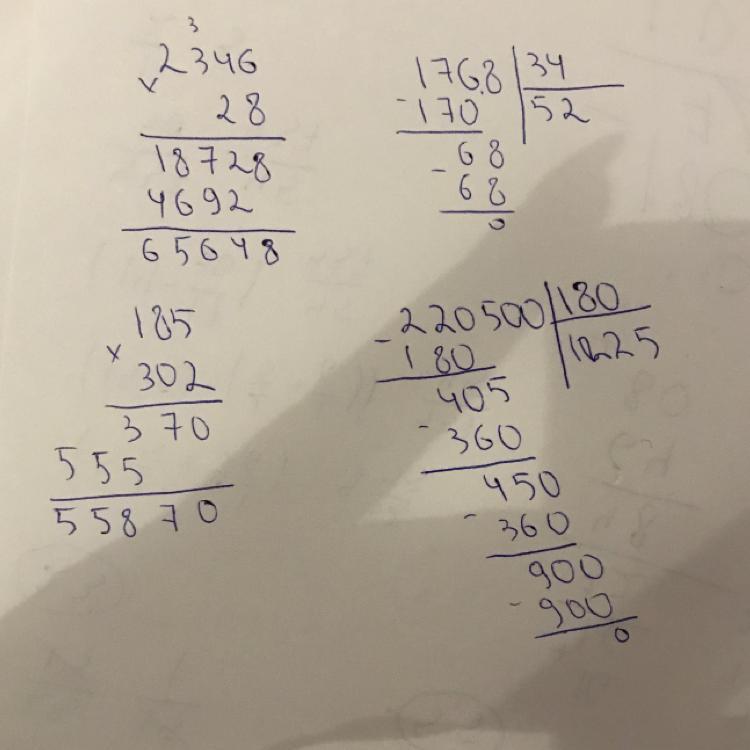 3
2346
×
28
18728
4692
65648
1768 34
-170 52
68
-
68
0
185
×
302
370
555
55870
220500 180
-
180 1225
405
-
360
450
-
360
900
-
900
0